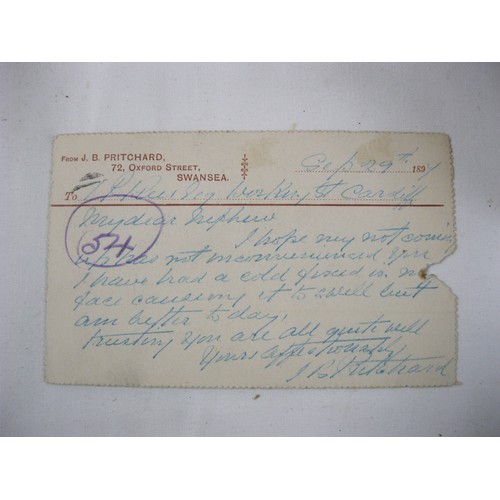 From J. B. PRITCHARD,
72, OXFORD STREET,
SWANSEA.
Sep 29th 189
To Esq Working St Cardiff
54
My dear Nephew
I hope my not coming
up has not inconvenienced you
I have had a cold fixed in my
face causing it to swell but
am better to day,
trusting you are all quite well
Yours affectionately
J B Pritchard